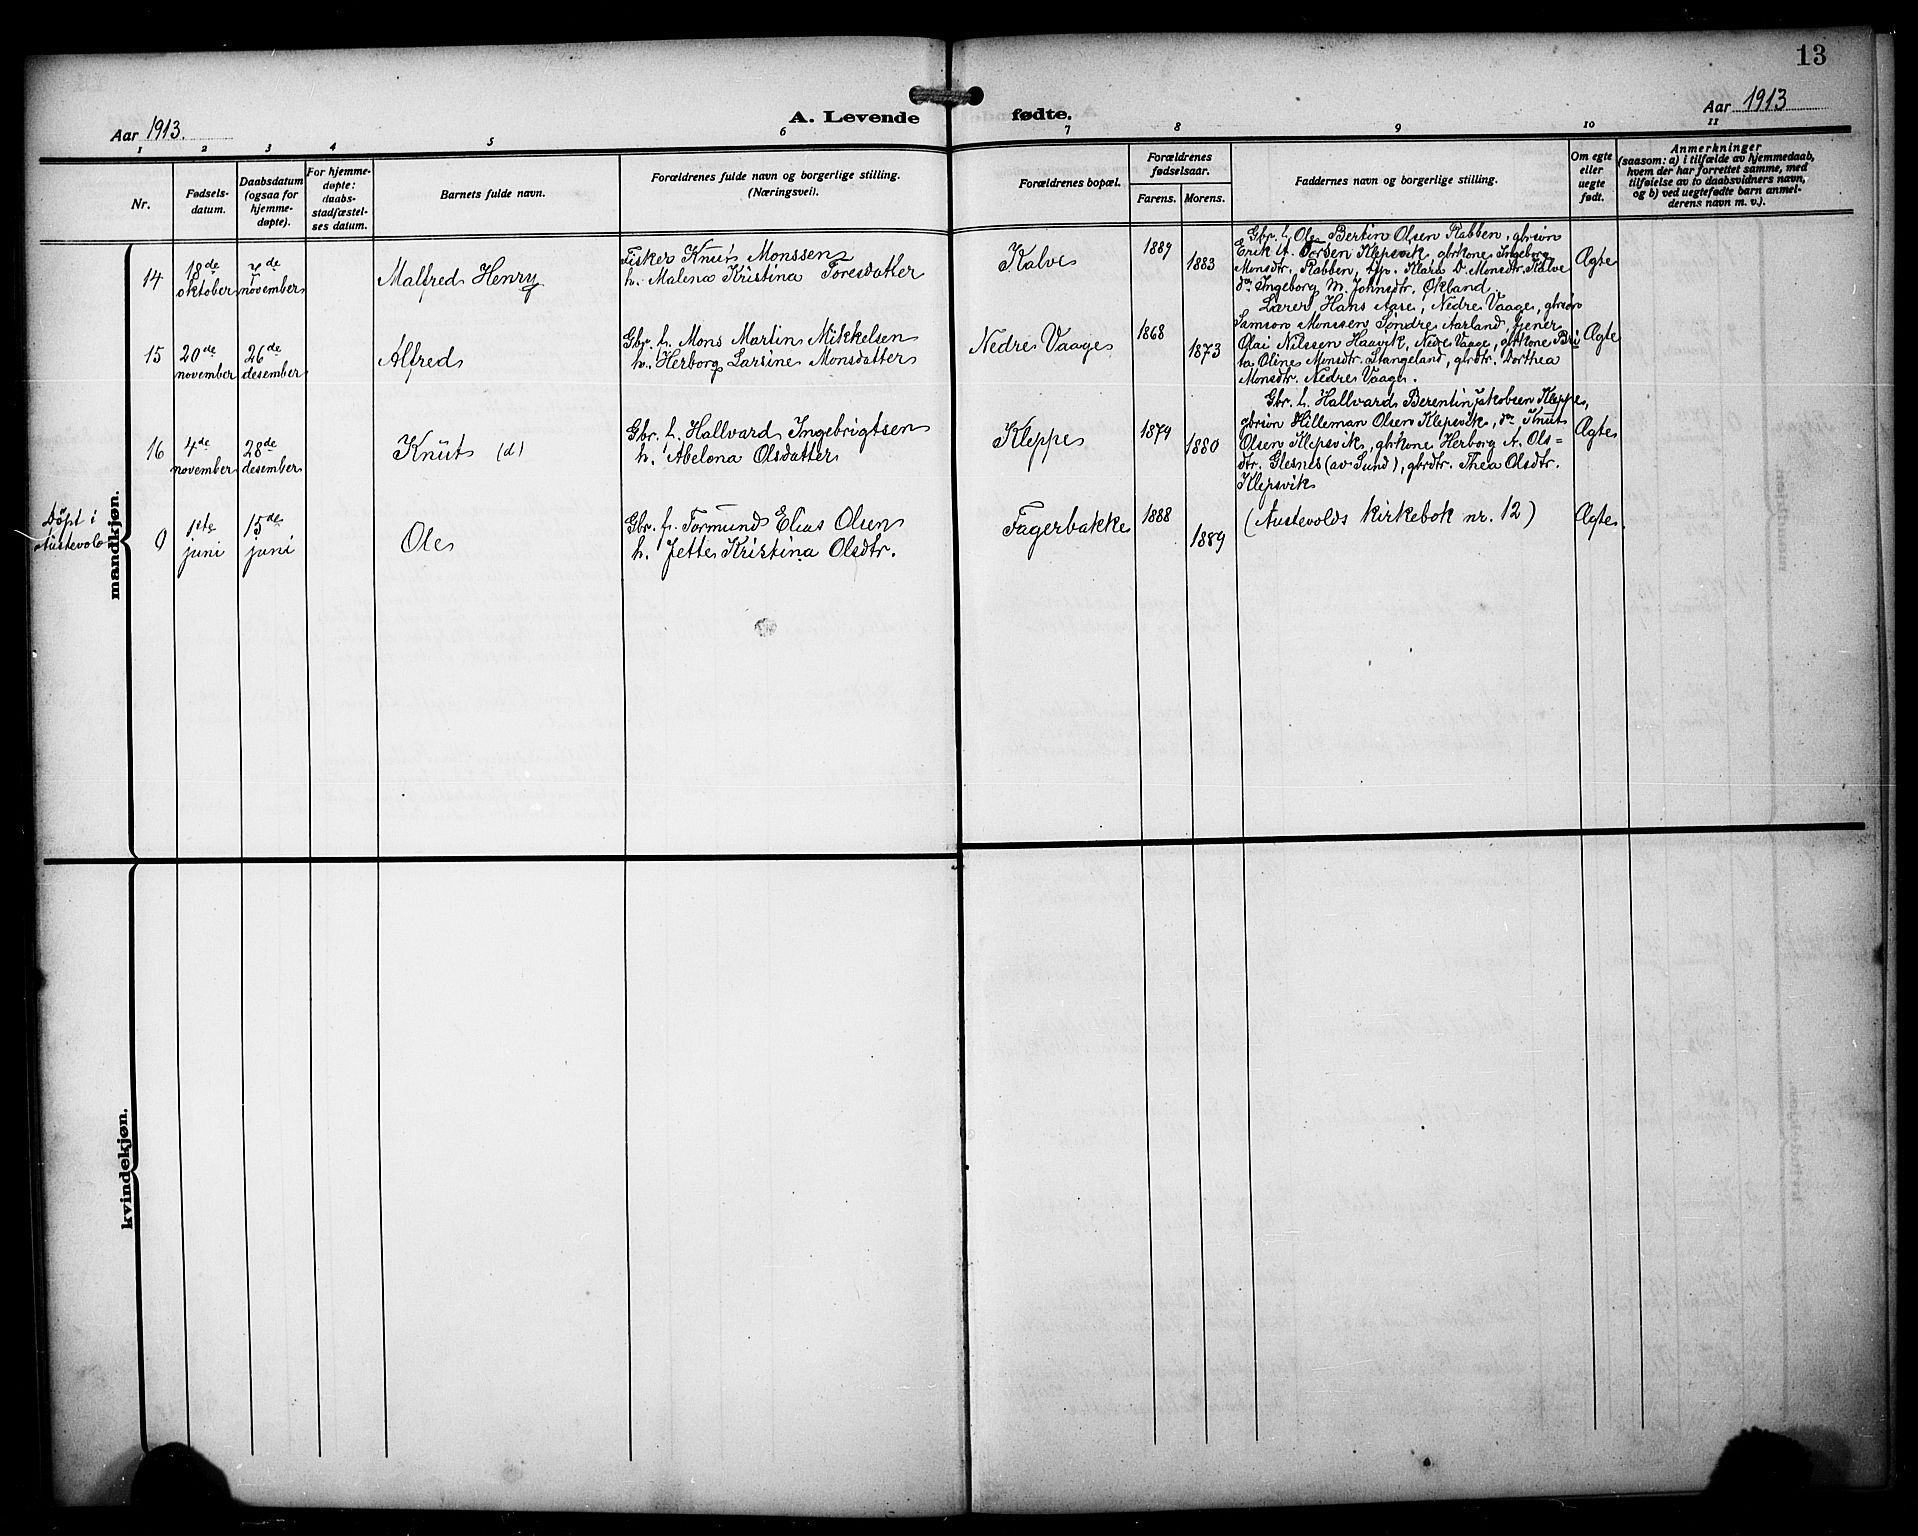 13
Aar 1913.
A. Levende
fødte.
Aar 1913
1 2 3 4 5 6 7 8 9 10 11
Nr.
Fødsels-
datum.
Daabsdatum
(ogsaa for
hjemme-
døpte).
For hjemme-
døpte:
daabs-
stadfæstel-
ses datum.
Barnets fulde navn.
Forældrenes fulde navn og borgerlige stilling.
(Næringsvei).
Forældrenes bopæl.
Forældrenes
fødselsaar.
Farens. Morens.
Faddernes navn og borgerlige stilling.
Om egte
eller
uegte
født.
Anmerkninger
(saasom: a) i tilfælde av hjemmedaab,
hvem der har forrettet samme, med
tilføielse av to daabsvidners navn,
og b) ved uegtefødte barn anmel-
derens navn m. v.).
mandkjøn.
14
18de
oktober
november
Malfred Henry
Fisker Knut Monssen
h. Malena Kristina Toresdatter
Kalve
1889
1883
Gbr. L. Ole Bertin Olsen Rabben, gbrsøn
Erik A. Torsen Klepsvik, gbrkone Ingeborg
Monsdtr. Rabben, Klara D. Monsdtr. Kalve
do Ingeborg M. Johnsdtr. Økland.
Ægte
15
20de
november
26de
desember
Alfred
Gbr. L. Mons Martin Mikkelsen
h. Herborg Larsine Monsdatter
Nedre Vaage
1868
1873
Lærer Hans Aase, Nedre Vaage, gbrsøn
Samson Monssen Søndre Aarland, tjener
Olai Nilssen Haavik, Nedre Vaage, gbrkone Bri
ta Oline Monsdtr. Stangeland, gbrdtr. Dorthea
Monsdtr. Nedre Vaage.
Ægte
16
4de
november
28de
desember
Knut (d)
Gbr. L. Hallvard Ingebrigtsen
h. Abelona Olsdatter
Kleppe
1874
1880
Gbr. L. Hallvard Berentin Jakobsen Kleppe,
gbrsøn Hilleman Olsen Klepsvik, do Knut
Olsen Klepsvik, gbrkone Herborg A. Ols=
dtr. Glesnes (av Sund), gbrdtr. Thea Olsdtr.
Klepsvik
Ægte
Döpt i
Austevold
9
1ste
juni
15de
juni
Ole
Gbr. L. Tormund Elias Olsen
h. Jette Kristina Olsdtr.
Fagerbakke
1888
1889
(Austevolds kirkebok nr. 12)
Ægte
kvindekjøn.